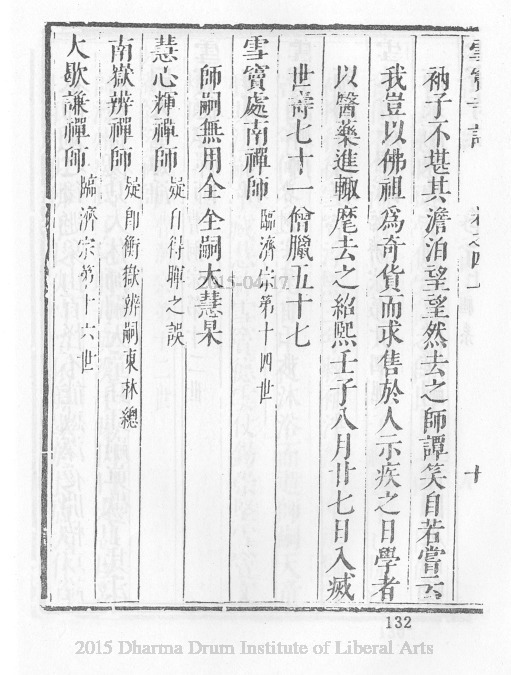 雪竇寺誌 卷之四上 十
衲子不堪其澹泊望望然去之師譚笑自若嘗云
我豈以佛祖為奇貨而求售於人示疾之日學者
以醫藥進輒麾去之紹熙壬子八月廿七日入滅
世壽七十一僧臘五十七
雪竇處南禪師 臨濟宗第十四世
師嗣無用全全嗣大慧杲
慧心輝禪師 疑自得暉之誤
南嶽辨禪師 疑卽衡嶽辨嗣東林總
大歇謙禪師 臨濟宗第十六世
2015-04-17
132
2015 Dharma Drum Institute of Liberal Arts